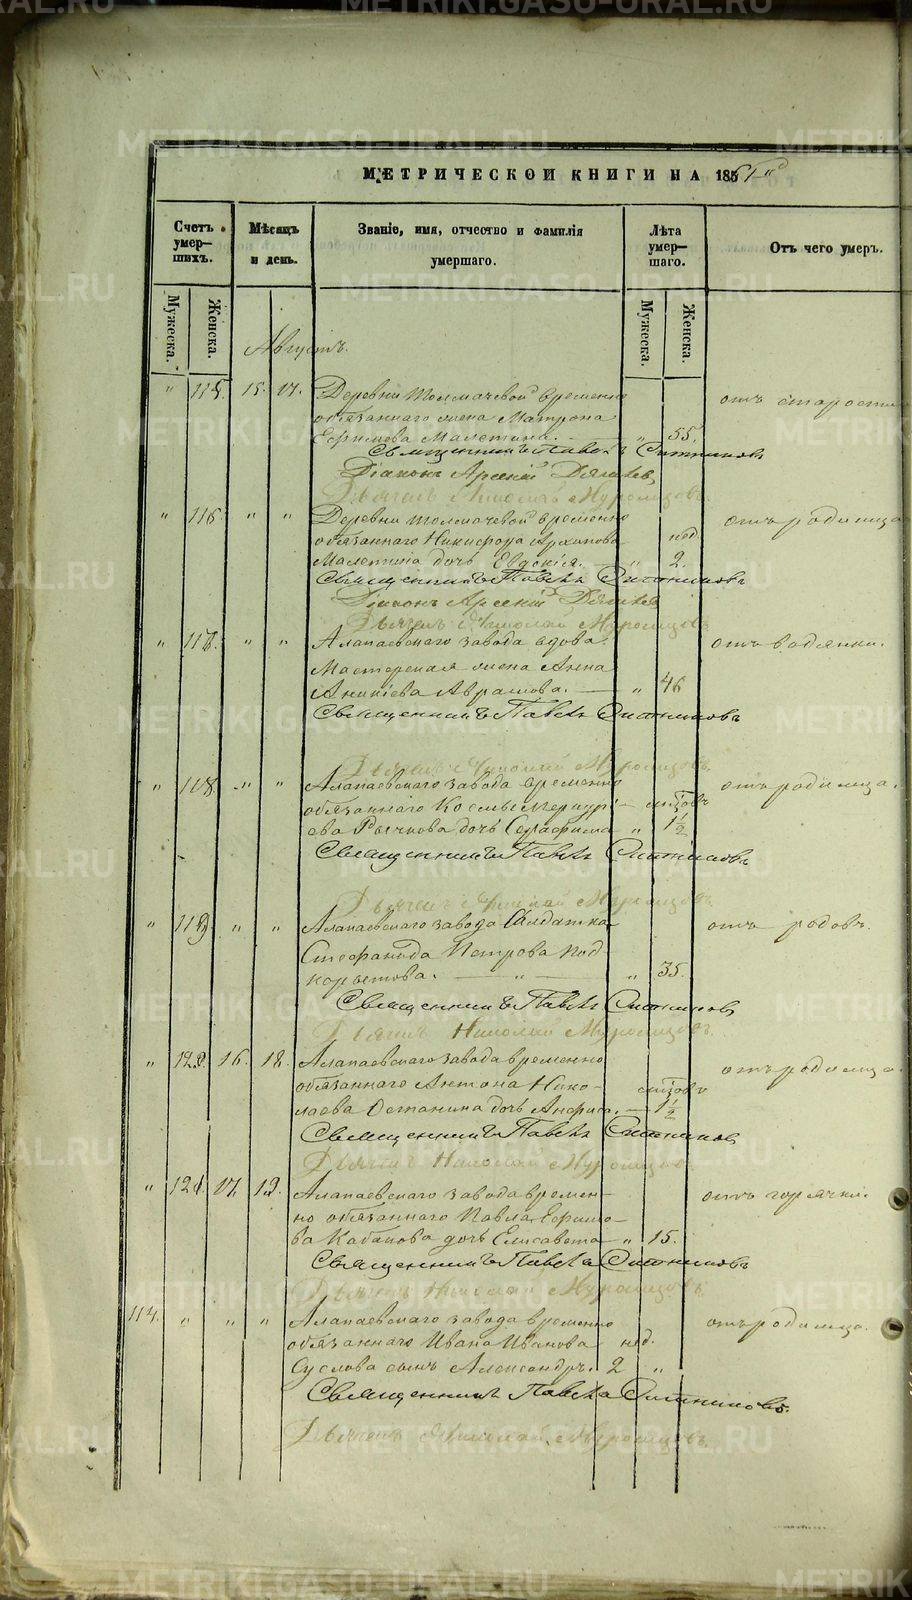 МЕТРИЧЕСКОЙ КНИГИ НА 186
Счетъ умерших.
Мѣсяцъ и день.
Званіе, имя, отчество и фамилія умершаго.
Лѣта умершаго.
Отъ чего умеръ.
Мужеска. Женска. Мужеска. Женска.
Августъ.
" 115. 15. 17. Деревни Толмачевой временно отъ старости
обязаннаго жена Матрона
Ефимова Малетина. — " 55.
Священникъ Павелъ Ситниковъ
Діаконъ Арсеній Дягилев
Дьячекъ Николай Муромцовъ.
" 116. " " Деревни Толмачевой временно отъ родимца
обязаннаго Никифора Архипова нед.
Малетина дочь Евдокія. " 2.
Священникъ Павелъ Ситниковъ
Діаконъ Арсеній Дягилев
Дьячекъ Николай Муромцовъ
" 117. " " Алапаевскаго завода вдова отъ водянки.
Мастерская жена Анна
Аникіева Аврамова. — " 46
Священникъ Павелъ Ситниковъ
Дьячекъ Николай Муромцовъ.
" 118. " " Алапаевскаго завода временно отъ родимца.
обязаннаго Космы Меркурі- мѣсцовъ
ева Рычкова дочь Серафима " 1½
Священникъ Павелъ Ситниковъ
Дьячекъ Николай Муромцовъ
" 119. " " Алапаевскаго завода Солдатка отъ родовъ.
Стефанида Петрова Под-
корытова. — " — " 35.
Священникъ Павелъ Ситниковъ
Дьячекъ Николай Муромцовъ.
" 120. 16. 18. Алапаевскаго завода временно отъ родимца.
обязаннаго Антона Нико- мѣсцовъ
лаева Останина дочь Анфиса. — 1½
Священникъ Павелъ Ситниковъ
Дьячекъ Николай Муромцовъ
" 121. 17. 19. Алапаевскаго завода времен- отъ горячки.
но обязаннаго Павла Ефимо-
ва Кабакова дочь Елисавета " 15.
Священникъ Павелъ Ситниковъ
Дьячекъ Николай Муромцовъ.
114. " " " Алапаевскаго завода временно отъ родимца.
обязаннаго Ивана Иванова нед.
Суслова сынъ Александръ. 2 "
Священникъ Павелъ Ситниковъ.
Дьячекъ Николай Муромцовъ.
METRIKI.GASO-URAL.RU